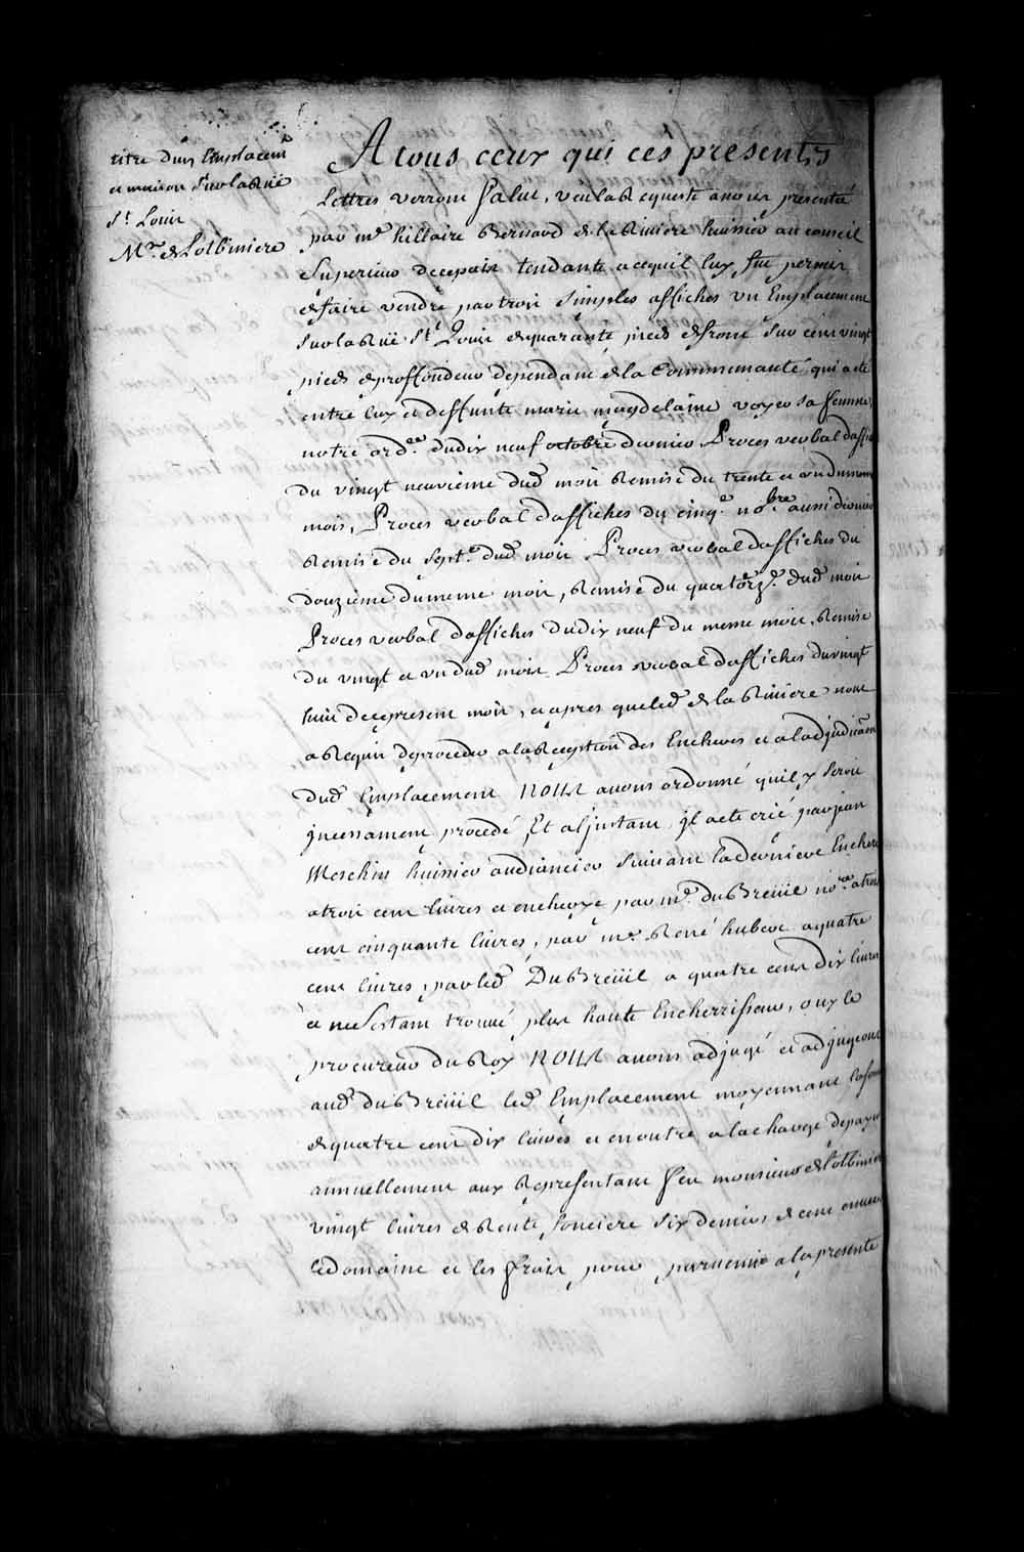 titre dun Emplacemt
et maison sur la Rüe
St Louis
Mr. de Lotbiniere
A tous ceux qui ces presentes
Lettres verront Salut, veu la Requeste anous presenté
par me hillaire Bernard de la Riviere huissier au conseil
Superieur de ce pais tendante a ce quil luy fut permis
de faire vendre par trois simples affiches un Emplacement
sur la Rüe St Louis de quarante pieds de front sur cent vingt
pieds de proffondeur dependant de la Communauté qui a été
entre luy et deffunte marie magdelaine voyer sa femme,
notre ordce. du dix neuf octobre dernier Proces verbal daffiches
du vingt neuvieme dud mois Remise du trente et un du mesme
mois, Proces verbal daffiches du cinqe. nobre. aussi dernier
Remise du septe. dud mois Proces verbal daffiches du
douzieme du meme mois, Remise du quatorze. dud mois
Proces verbal daffiches du dix neuf du meme mois, Remise
du vingt et un dud mois Proces verbal daffiches du vingt
huit de ce present mois, et apres que led de la Riviere nous
a Requis de proceder a la Reception des Encheres et a ladjudication
dud Emplacement NOUS avons ordonné quil y seroit
jncessament procedé Et a ljnstant jl a eté crié par jean
Meschin huissier audiancier suivant la derniere Enchere
a trois cent livres et encherye par me. duBreüil nore. a trois
cent cinquante livres, par me. René hubert a quatre
cent livres, par led DuBreüil a quatre cent dix livres
et ne sestant trouvé plus haute Encherrisseur, ouy le
procureur du Roy NOUS avons adjugé et adjugeons
aud duBreüil led Emplacement moyennant la somme
de quatre cent dix livres et en outre a la charge de payer
annuellement aux Representant feu monsieur de Lotbiniere
vingt livres de Rente fonciere six deniers de cens envers
le domaine et les frais pour parvenir a la presente